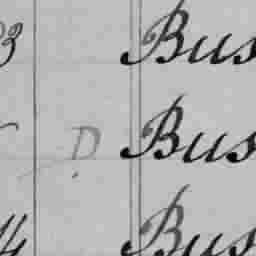 3 Bus
D Bus
4 Bus